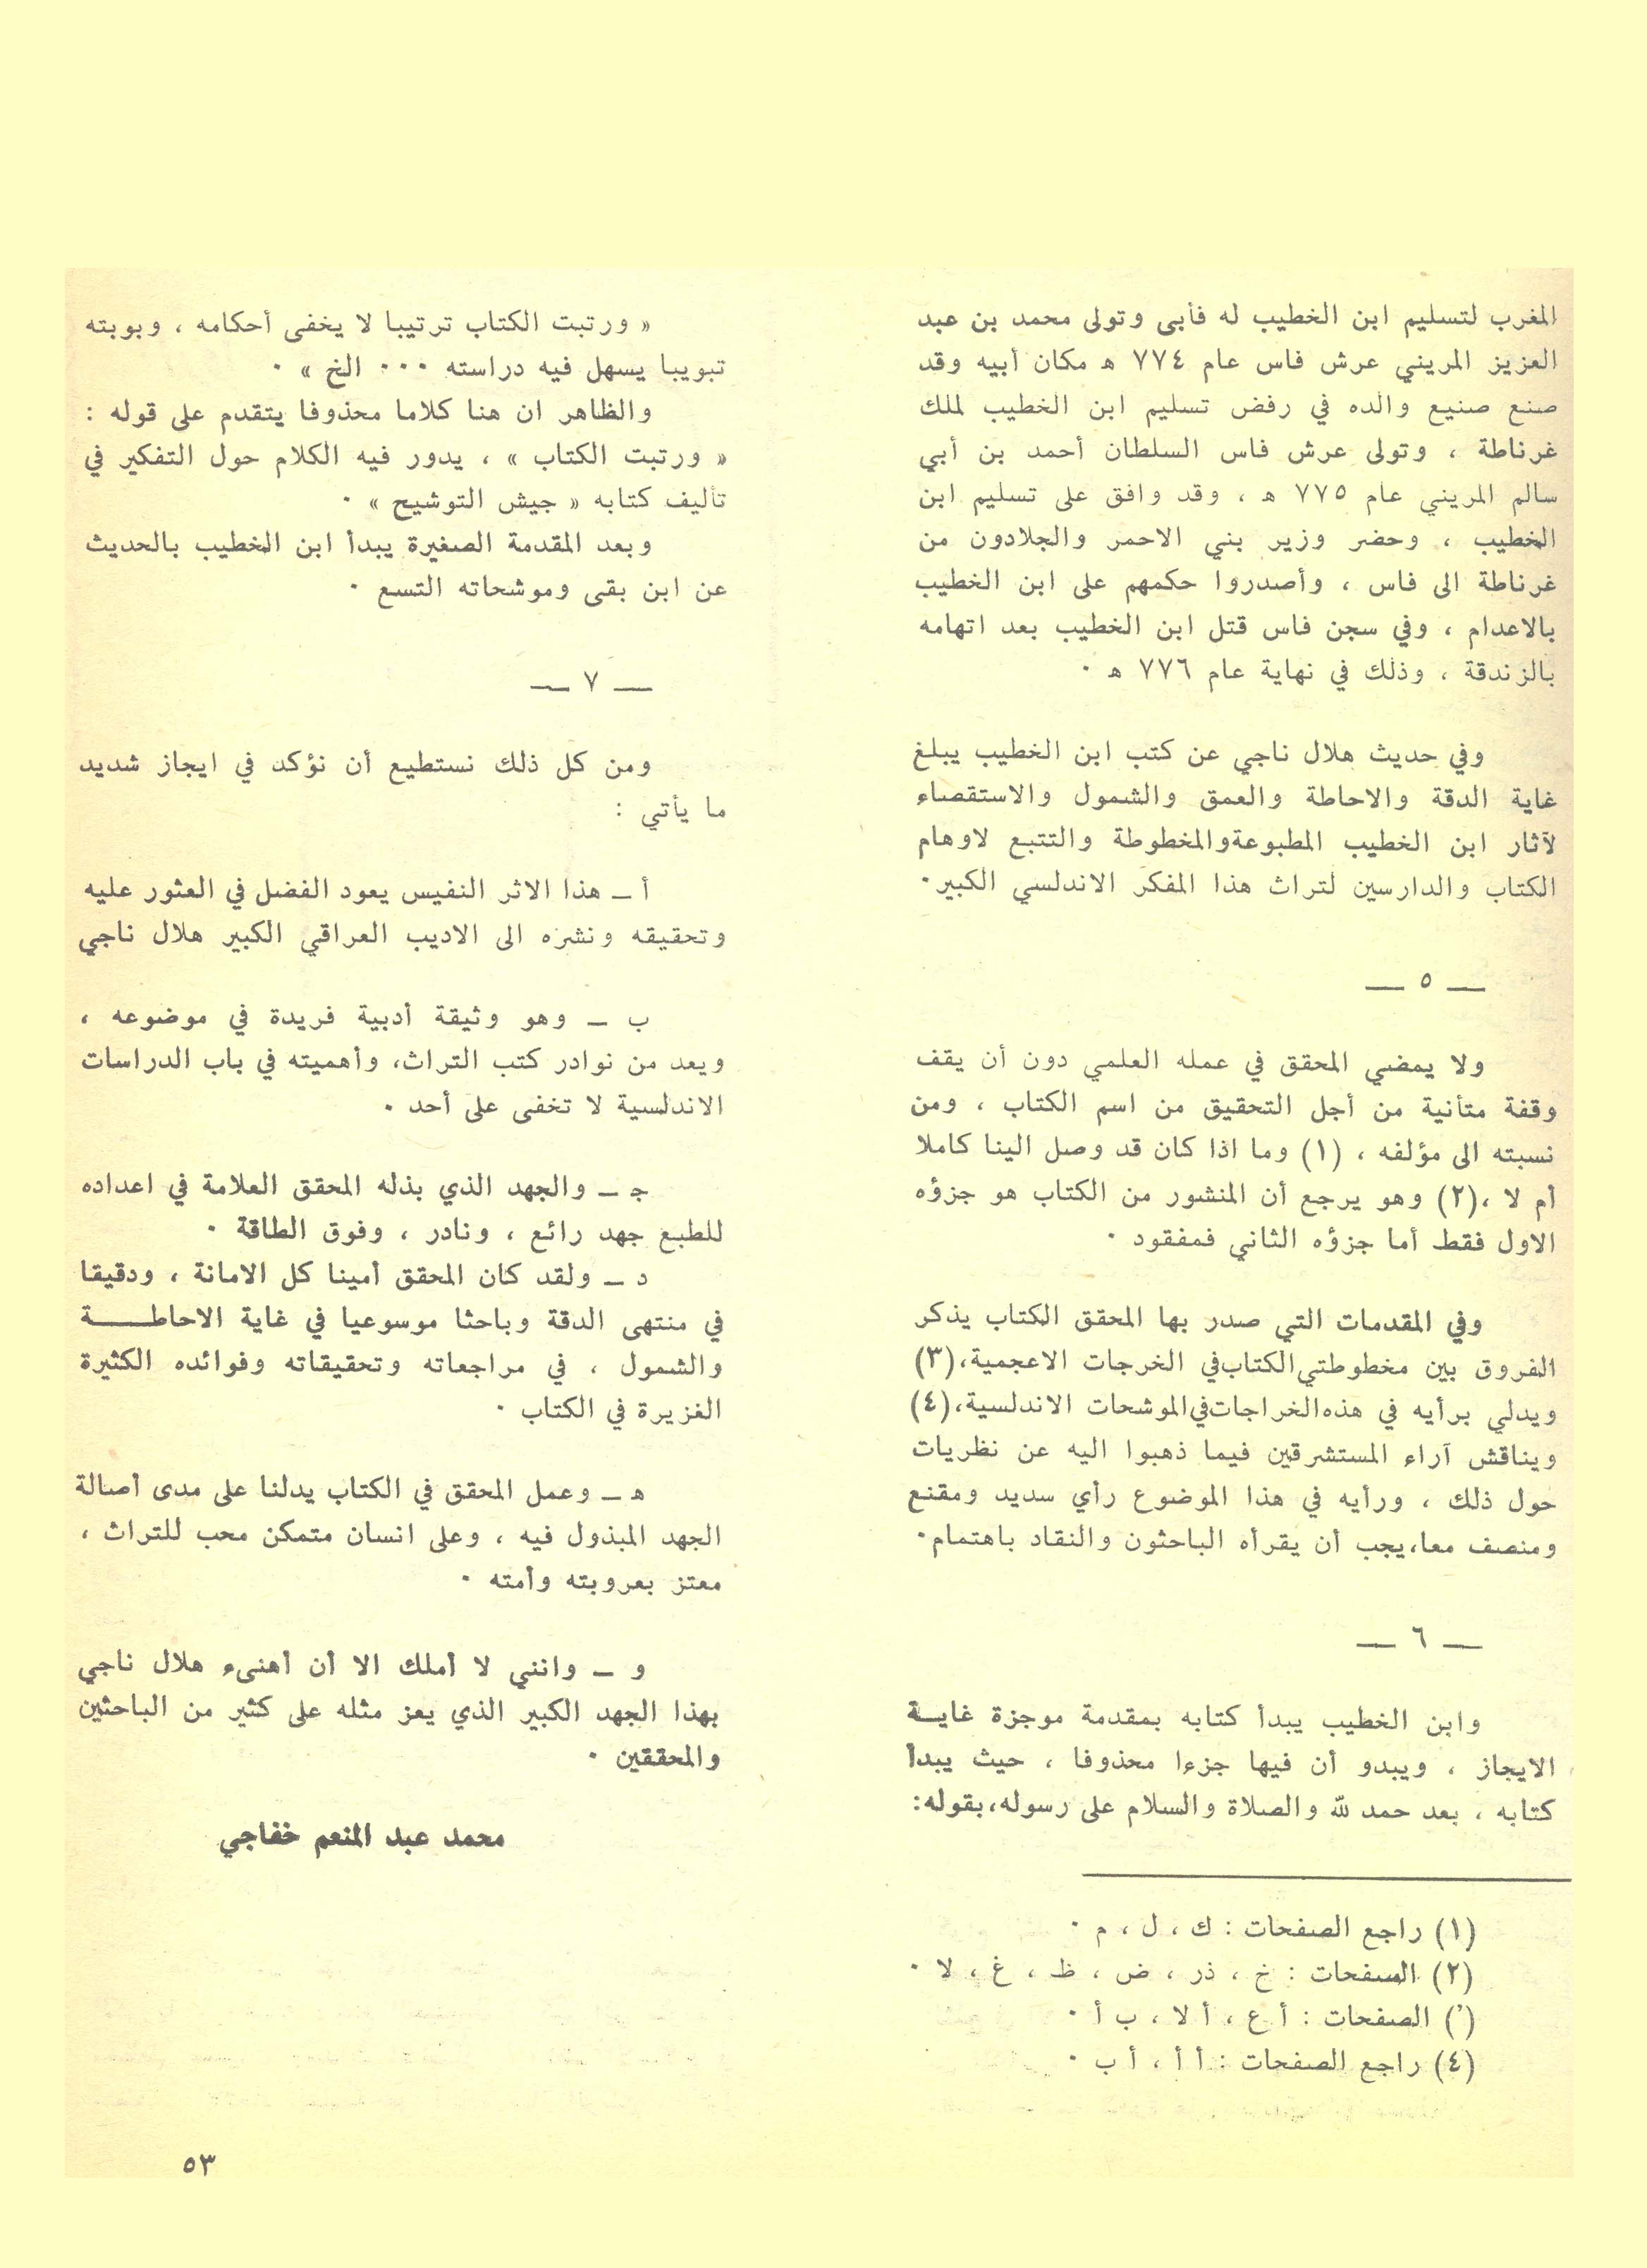 المغرب لتسليم ابن الخطيب له فأبى وتولى محمد بن عبد
العزيز المريني عرش فاس عام ٧٧٤ هـ مكان أبيه وقد
صنع صنيع والده في رفض تسليم ابن الخطيب لملك
غرناطة ، وتولى عرش فاس السلطان أحمد بن أبي
سالم المريني عام ٧٧٥ هـ ، وقد وافق على تسليم ابن
الخطيب ، وحضر وزير بني الاحمر والجلادون من
غرناطة الى فاس ، وأصدروا حكمهم على ابن الخطيب
بالاعدام ، وفي سجن فاس قتل ابن الخطيب بعد اتهامه
بالزندقة ، وذلك في نهاية عام ٧٧٦ هـ ٠
وفي حديث هلال ناجي عن كتب ابن الخطيب يبلغ
غاية الدقة والاحاطة والعمق والشمول والاستقصاء
لآثار ابن الخطيب المطبوعةوالمخطوطة والتتبع لاوهام
الكتاب والدارسين لتراث هذا المفكر الاندلسي الكبير٠
— ٥ —
ولا يمضي المحقق في عمله العلمي دون أن يقف
وقفة متأنية من أجل التحقيق من اسم الكتاب ، ومن
نسبته الى مؤلفه ، (١) وما اذا كان قد وصل الينا كاملا
أم لا ،(٢) وهو يرجع أن المنشور من الكتاب هو جزؤه
الاول فقط أما جزؤه الثاني فمفقود ٠
وفي المقدمات التي صدر بها المحقق الكتاب يذكر
الفروق بين مخطوطتي الكتاب في الخرجات الاعجمية،(٣)
ويدلي برأيه في هذه الخراجات في الموشحات الاندلسية،(٤)
ويناقش آراء المستشرقين فيما ذهبوا اليه عن نظريات
حول ذلك ، ورأيه في هذا الموضوع رأي سديد ومقنع
ومنصف معا،يجب أن يقرأه الباحثون والنقاد باهتمام٠
— ٦ —
وابن الخطيب يبدأ كتابه بمقدمة موجزة غايـة
الايجاز ، ويبدو أن فيها جزءا محذوفا ، حيث يبدأ
كتابه ، بعد حمد لله والصلاة والسلام على رسوله،بقوله:
(١) راجع الصفحات : ك ، ل ، م ٠
(٢) الصفحات : خ ، ذر ، ض ، ظ ، غ ، لا ٠
(٬) الصفحات : أ ع ، أ لا ، ب أ ٠
(٤) راجع الصفحات : أ أ ، أ ب ٠
« ورتبت الكتاب ترتيبا لا يخفى أحكامه ، وبوبته
تبويبا يسهل فيه دراسته ٠٠٠ الخ » ٠
والظاهر ان هنا كلاما محذوفا يتقدم على قوله :
« ورتبت الكتاب » ، يدور فيه الكلام حول التفكير في
تأليف كتابه « جيش التوشيح » ٠
وبعد المقدمة الصغيرة يبدأ ابن الخطيب بالحديث
عن ابن بقى وموشحاته التسع ٠
— ٧ —
ومن كل ذلك نستطيع أن نؤكد في ايجاز شديد
ما يأتي :
أ ــ هذا الاثر النفيس يعود الفضل في العثور عليه
وتحقيقه ونشره الى الاديب العراقي الكبير هلال ناجي
ب ــ وهو وثيقة أدبية فريدة في موضوعه ،
ويعد من نوادر كتب التراث، وأهميته في باب الدراسات
الاندلسية لا تخفى على أحد ٠
جـ ــ والجهد الذي بذله المحقق العلامة في اعداده
للطبع جهد رائع ، ونادر ، وفوق الطاقة ٠
د ــ ولقد كان المحقق أمينا كل الامانة ، ودقيقا
في منتهى الدقة وباحثا موسوعيا في غاية الاحاطـــــة
والشمول ، في مراجعاته وتحقيقاته وفوائده الكثيرة
الغزيرة في الكتاب ٠
هـ ــ وعمل المحقق في الكتاب يدلنا على مدى أصالة
الجهد المبذول فيه ، وعلى انسان متمكن محب للتراث ،
معتز بعروبته وأمته ٠
و ــ وانني لا أملك الا أن أهنىء هلال ناجي
بهذا الجهد الكبير الذي يعز مثله على كثير من الباحثين
والمحققين ٠
محمد عبد المنعم خفاجي
٥٣